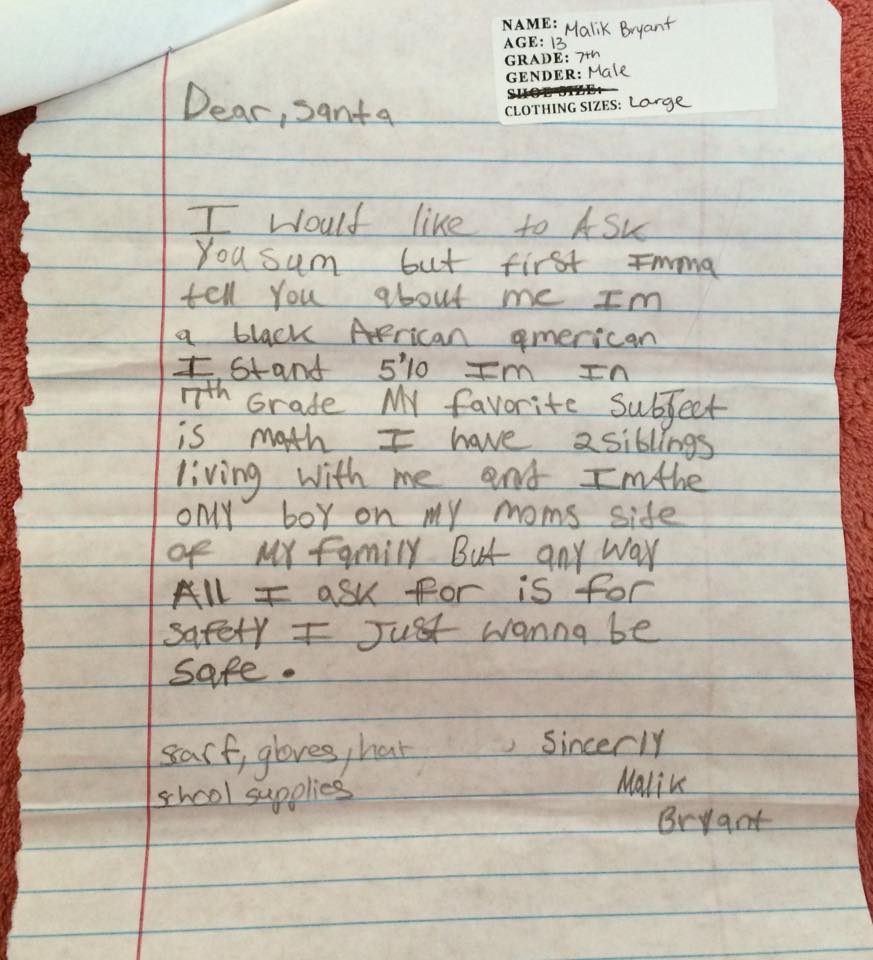 NAME: Malik Bryant
AGE: 13
GRADE: 7th
GENDER: Male
SHOE SIZE:
CLOTHING SIZES: Large
Dear, Santa
I would like to ASK
You sum but first Imma
tell You about me Im
a black African american
I Stand 5'10 Im In
7th Grade My favorite Subject
is math I have 2 siblings
living with me and Im the
only boy on my moms side
of My family But any way
All I ask for is for
safety I Just wanna be
Safe.
sarf, gloves, hat
schol supplies
Sincerly
Malik
Bryant